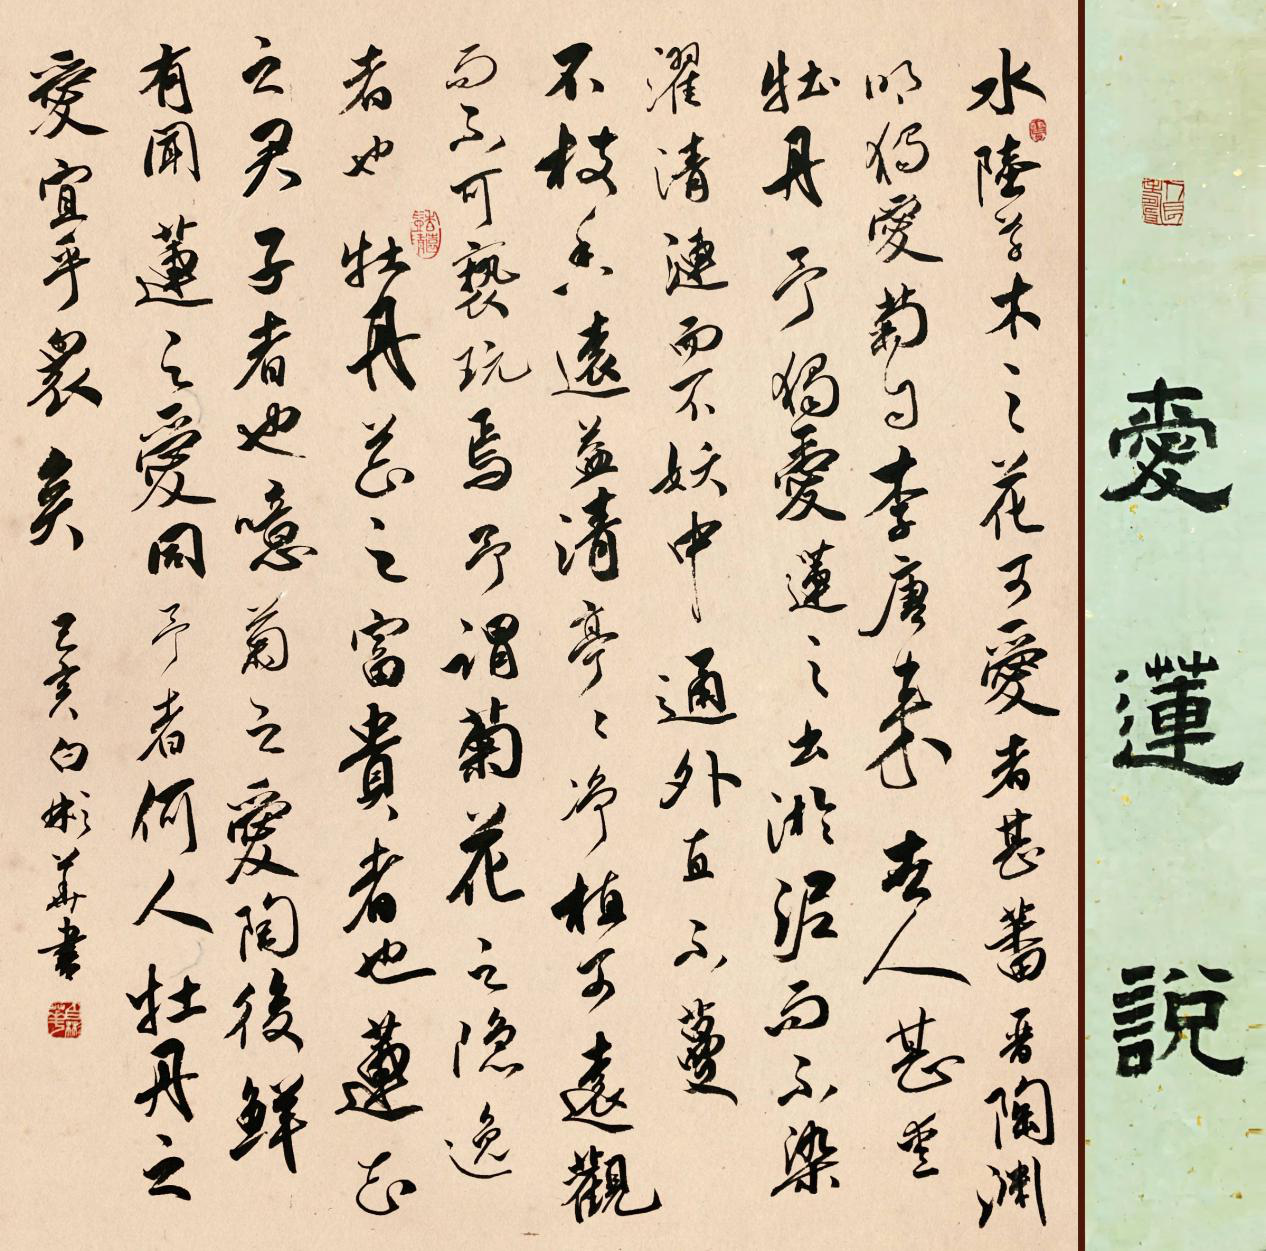 愛蓮說
水陸草木之花可愛者甚蕃晉陶淵
明獨愛菊自李唐來世人甚愛
牡丹予獨愛蓮之出淤泥而不染
濯清漣而不妖中通外直不蔓
不枝香遠益清亭々淨植可遠觀
而不可褻玩焉予謂菊花之隱逸
者也牡丹花之富貴者也蓮花
之君子者也噫菊之愛陶後鮮
有聞蓮之愛同予者何人牡丹之
愛宜乎衆矣
己亥白彬華書